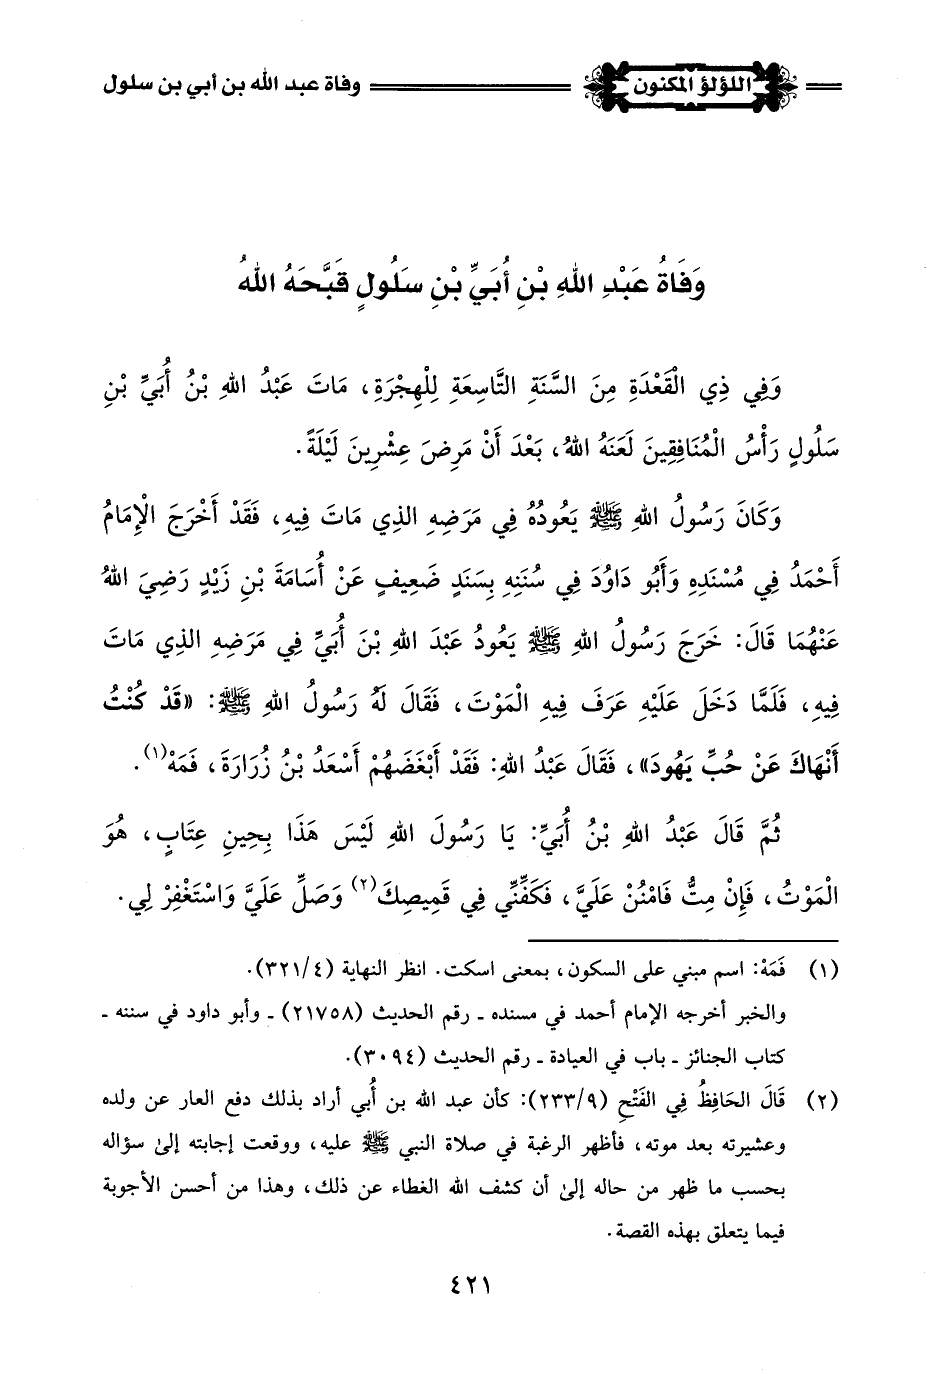 اللؤلؤ المكنون وفاة عبد الله بن أبي بن سلول
وَفَاةُ عَبْدِ اللهِ بْنِ أُبَيِّ بْنِ سَلُولٍ قَبَّحَهُ اللهُ
وَفِي ذِي الْقَعْدَةِ مِنَ السَّنَةِ التَّاسِعَةِ لِلْهِجْرَةِ، مَاتَ عَبْدُ اللهِ بْنُ أُبَيِّ بْنِ
سَلُولٍ رَأْسُ الْمُنَافِقِينَ لَعَنَهُ اللهُ، بَعْدَ أَنْ مَرِضَ عِشْرِينَ لَيْلَةً.
وَكَانَ رَسُولُ اللهِ ﷺ يَعُودُهُ فِي مَرَضِهِ الذِي مَاتَ فِيهِ، فَقَدْ أَخْرَجَ الْإِمَامُ
أَحْمَدُ فِي مُسْنَدِهِ وَأَبُو دَاوُدَ فِي سُنَنِهِ بِسَنَدٍ ضَعِيفٍ عَنْ أُسَامَةَ بْنِ زَيْدٍ رَضِيَ اللهُ
عَنْهُمَا قَالَ: خَرَجَ رَسُولُ اللهِ ﷺ يَعُودُ عَبْدَ اللهِ بْنَ أُبَيٍّ فِي مَرَضِهِ الذِي مَاتَ
فِيهِ، فَلَمَّا دَخَلَ عَلَيْهِ عَرَفَ فِيهِ الْمَوْتَ، فَقَالَ لَهُ رَسُولُ اللهِ ﷺ: «قَدْ كُنْتُ
أَنْهَاكَ عَنْ حُبِّ يَهُودَ»، فَقَالَ عَبْدُ اللهِ: فَقَدْ أَبْغَضَهُمْ أَسْعَدُ بْنُ زُرَارَةَ، فَمَهْ(١).
ثُمَّ قَالَ عَبْدُ اللهِ بْنُ أُبَيٍّ: يَا رَسُولَ اللهِ لَيْسَ هَذَا بِحِينِ عِتَابٍ، هُوَ
الْمَوْتُ، فَإِنْ مِتُّ فَامْنُنْ عَلَيَّ، فَكَفِّنِّي فِي قَمِيصِكَ(٢) وَصَلِّ عَلَيَّ وَاسْتَغْفِرْ لِي.
(١) فَمَهْ: اسم مبني على السكون، بمعنى اسكت. انظر النهاية (٣٢١/٤).
والخبر أخرجه الإمام أحمد في مسنده ـ رقم الحديث (٢١٧٥٨) ـ وأبو داود في سننه ـ
كتاب الجنائز ـ باب في العيادة ـ رقم الحديث (٣٠٩٤).
(٢) قَالَ الحَافِظُ فِي الفَتْحِ (٢٣٣/٩): كأن عبد الله بن أُبي أراد بذلك دفع العار عن ولده
وعشيرته بعد موته، فأظهر الرغبة في صلاة النبي ﷺ عليه، ووقعت إجابته إلى سؤاله
بحسب ما ظهر من حاله إلى أن كشف الله الغطاء عن ذلك، وهذا من أحسن الأجوبة
فيما يتعلق بهذه القصة.
٤٢١